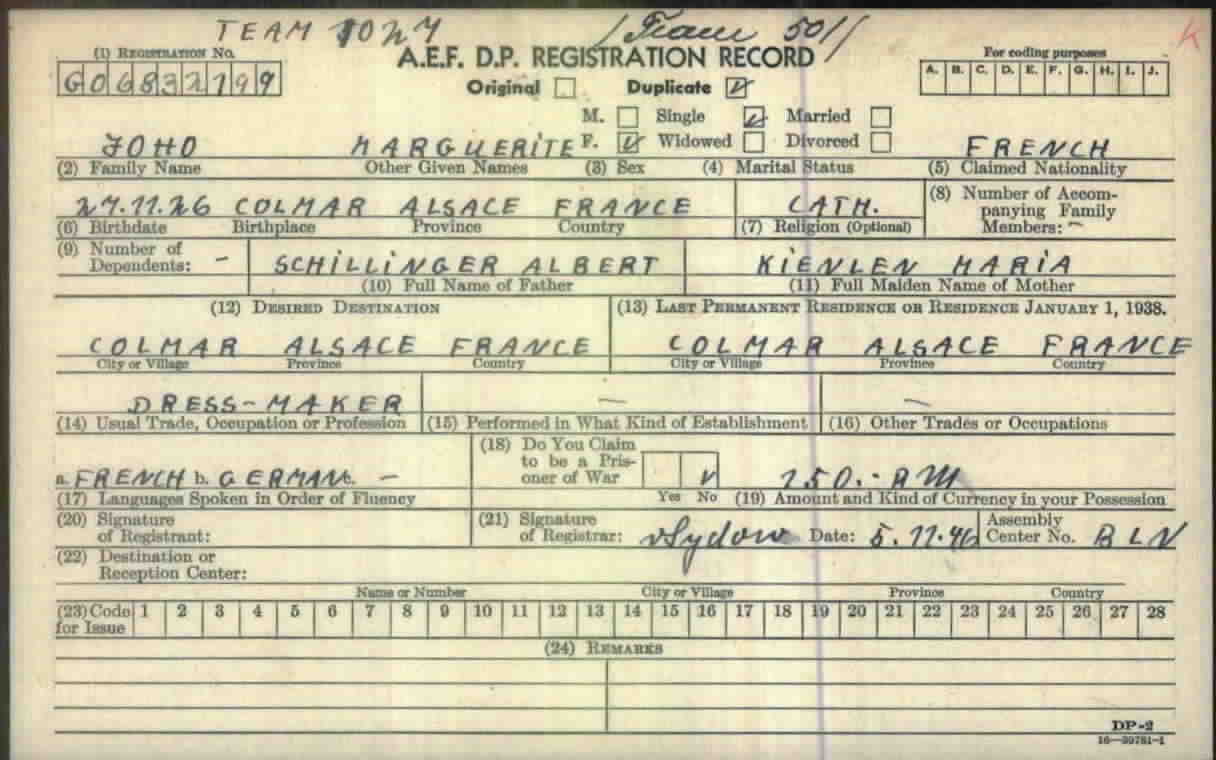 TEAM 1027 / Team 501/ K
(1) REGISTRATION No. A.E.F. D.P. REGISTRATION RECORD For coding purposes
G06832799 Original Duplicate A. B. C. D. E. F. G. H. I. J.
M. Single Married
JOHO MARGUERITE F. Widowed Divorced FRENCH
(2) Family Name Other Given Names (3) Sex (4) Marital Status (5) Claimed Nationality
27.11.26 COLMAR ALSACE FRANCE CATH. (8) Number of Accompanying Family Members: -
(6) Birthdate Birthplace Province Country (7) Religion (Optional)
(9) Number of Dependents: - SCHILLINGER ALBERT KIENLEN MARIA
(10) Full Name of Father (11) Full Maiden Name of Mother
(12) DESIRED DESTINATION (13) LAST PERMANENT RESIDENCE OR RESIDENCE JANUARY 1, 1938.
COLMAR ALSACE FRANCE COLMAR ALSACE FRANCE
City or Village Province Country City or Village Province Country
DRESS-MAKER - -
(14) Usual Trade, Occupation or Profession (15) Performed in What Kind of Establishment (16) Other Trades or Occupations
(18) Do You Claim to be a Prisoner of War
a. FRENCH b. GERMAN c. - 150.- RM
(17) Languages Spoken in Order of Fluency Yes No (19) Amount and Kind of Currency in your Possession
(20) Signature of Registrant: (21) Signature of Registrar: vSydow Date: 5.11.46 Assembly Center No. BLN
(22) Destination or Reception Center:
Name or Number City or Village Province Country
(23) Code for Issue 1 2 3 4 5 6 7 8 9 10 11 12 13 14 15 16 17 18 19 20 21 22 23 24 25 26 27 28
(24) REMARKS
DP-2
16-39781-1